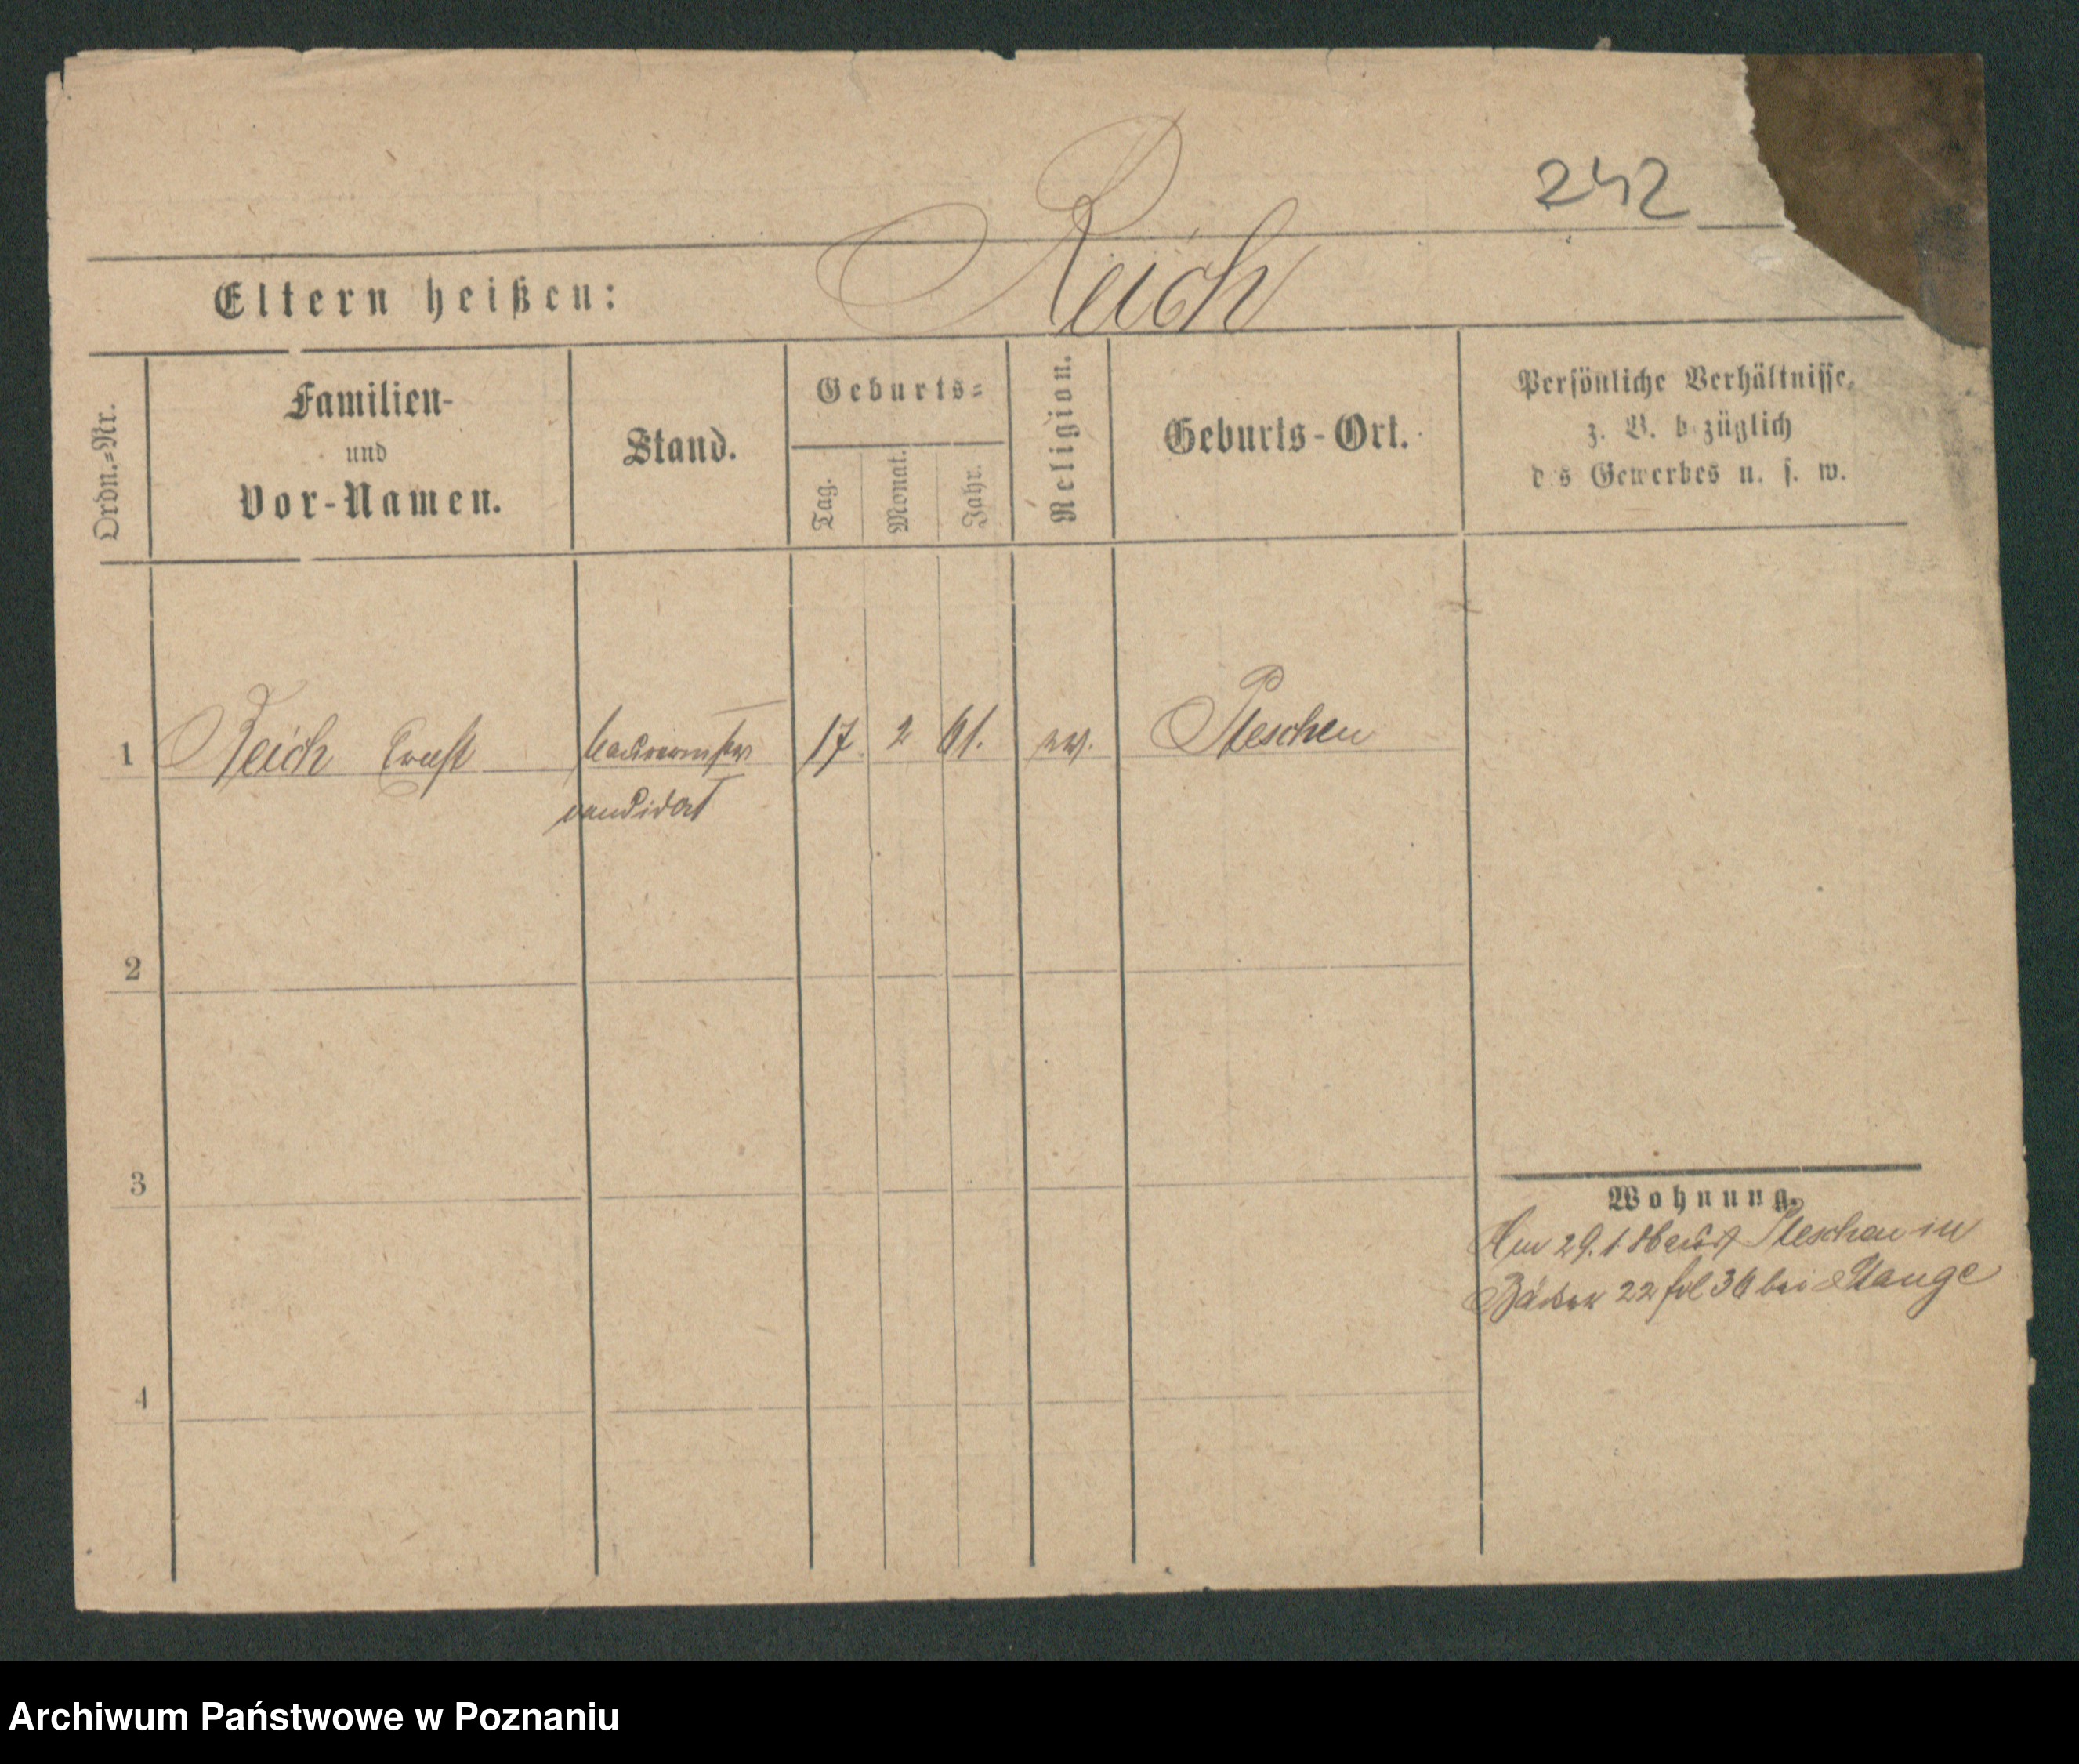 242
Reich
Eltern heißen:
Ordn.-Nr.
Familien-
und
Vor-Namen.
Stand.
Geburts-
Tag.
Monat.
Jahr.
Religion.
Geburts-Ort.
Persönliche Verhältnisse,
z. B. b züglich
d s Gewerbes u. s. w.
1 Reich Ernst 17 2 61. ev. Pleschen
candidat
2
3
Wohnung.
Am 29.1. Pleschen in
Bäcker 22 fol 36 bei Stange
4
Archiwum Państwowe w Poznaniu